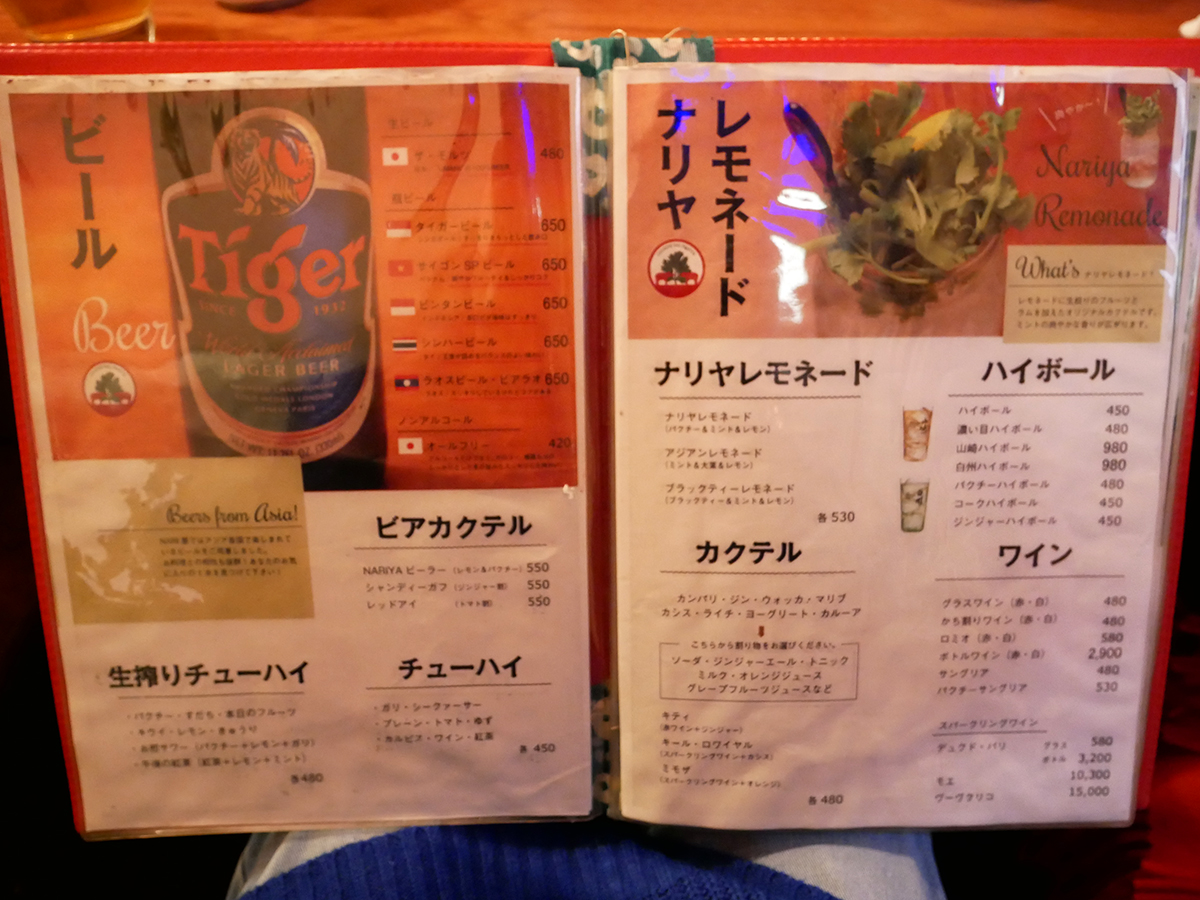 ビール
Beer
Tiger
SINCE 1932
LAGER BEER
生ビール
ザ・モルツ 480
瓶ビール
タイガービール 650
サイゴンSPビール 650
ビンタンビール 650
シンハービール 650
ラオスビール・ビアラオ 650
ノンアルコール
オールフリー 420
Beers from Asia!
ビアカクテル
NARIYA ビーラー (レモン&パクチー) 550
シャンディーガフ (ジンジャー割) 550
レッドアイ (トマト割) 550
生搾りチューハイ
・パクチー・すだち・本日のフルーツ
・キウイ・レモン・きゅうり
(パクチー+レモン+ガリ)
・午後の紅茶 (紅茶+レモン+ミント)
各480
チューハイ
・ガリ・シークァーサー
・プレーン・トマト・ゆず
・カルピス・ワイン・紅茶
各 450
ナリヤ
レモネード
Nariya
Remonade
What's ナリヤレモネード?
レモネードに生搾りのフルーツと
ラムを加えたオリジナルカクテルです。
ミントの爽やかな香りが広がります。
ナリヤレモネード
ナリヤレモネード
(パクチー&ミント&レモン)
アジアンレモネード
(ミント&大葉&レモン)
ブラックティーレモネード
(ブラックティー&ミント&レモン)
各 530
ハイボール
ハイボール 450
濃い目ハイボール 480
山崎ハイボール 980
白州ハイボール 980
パクチーハイボール 480
コークハイボール 450
ジンジャーハイボール 450
カクテル
カンパリ・ジン・ウォッカ・マリブ
カシス・ライチ・ヨーグリート・カルーア
こちらから割り物をお選びください。
ソーダ・ジンジャーエール・トニック
ミルク・オレンジジュース
グレープフルーツジュースなど
キティ
(赤ワイン+ジンジャー)
キール・ロワイヤル
(スパークリングワイン+カシス)
ミモザ
(スパークリングワイン+オレンジ)
各 480
ワイン
グラスワイン (赤・白) 480
かち割りワイン (赤・白) 480
ロミオ (赤・白) 580
ボトルワイン (赤・白) 2,900
サングリア 480
パクチーサングリア 530
スパークリングワイン
デュクド・パリ グラス 580
ボトル 3,200
モエ 10,300
ヴーヴクリコ 15,000